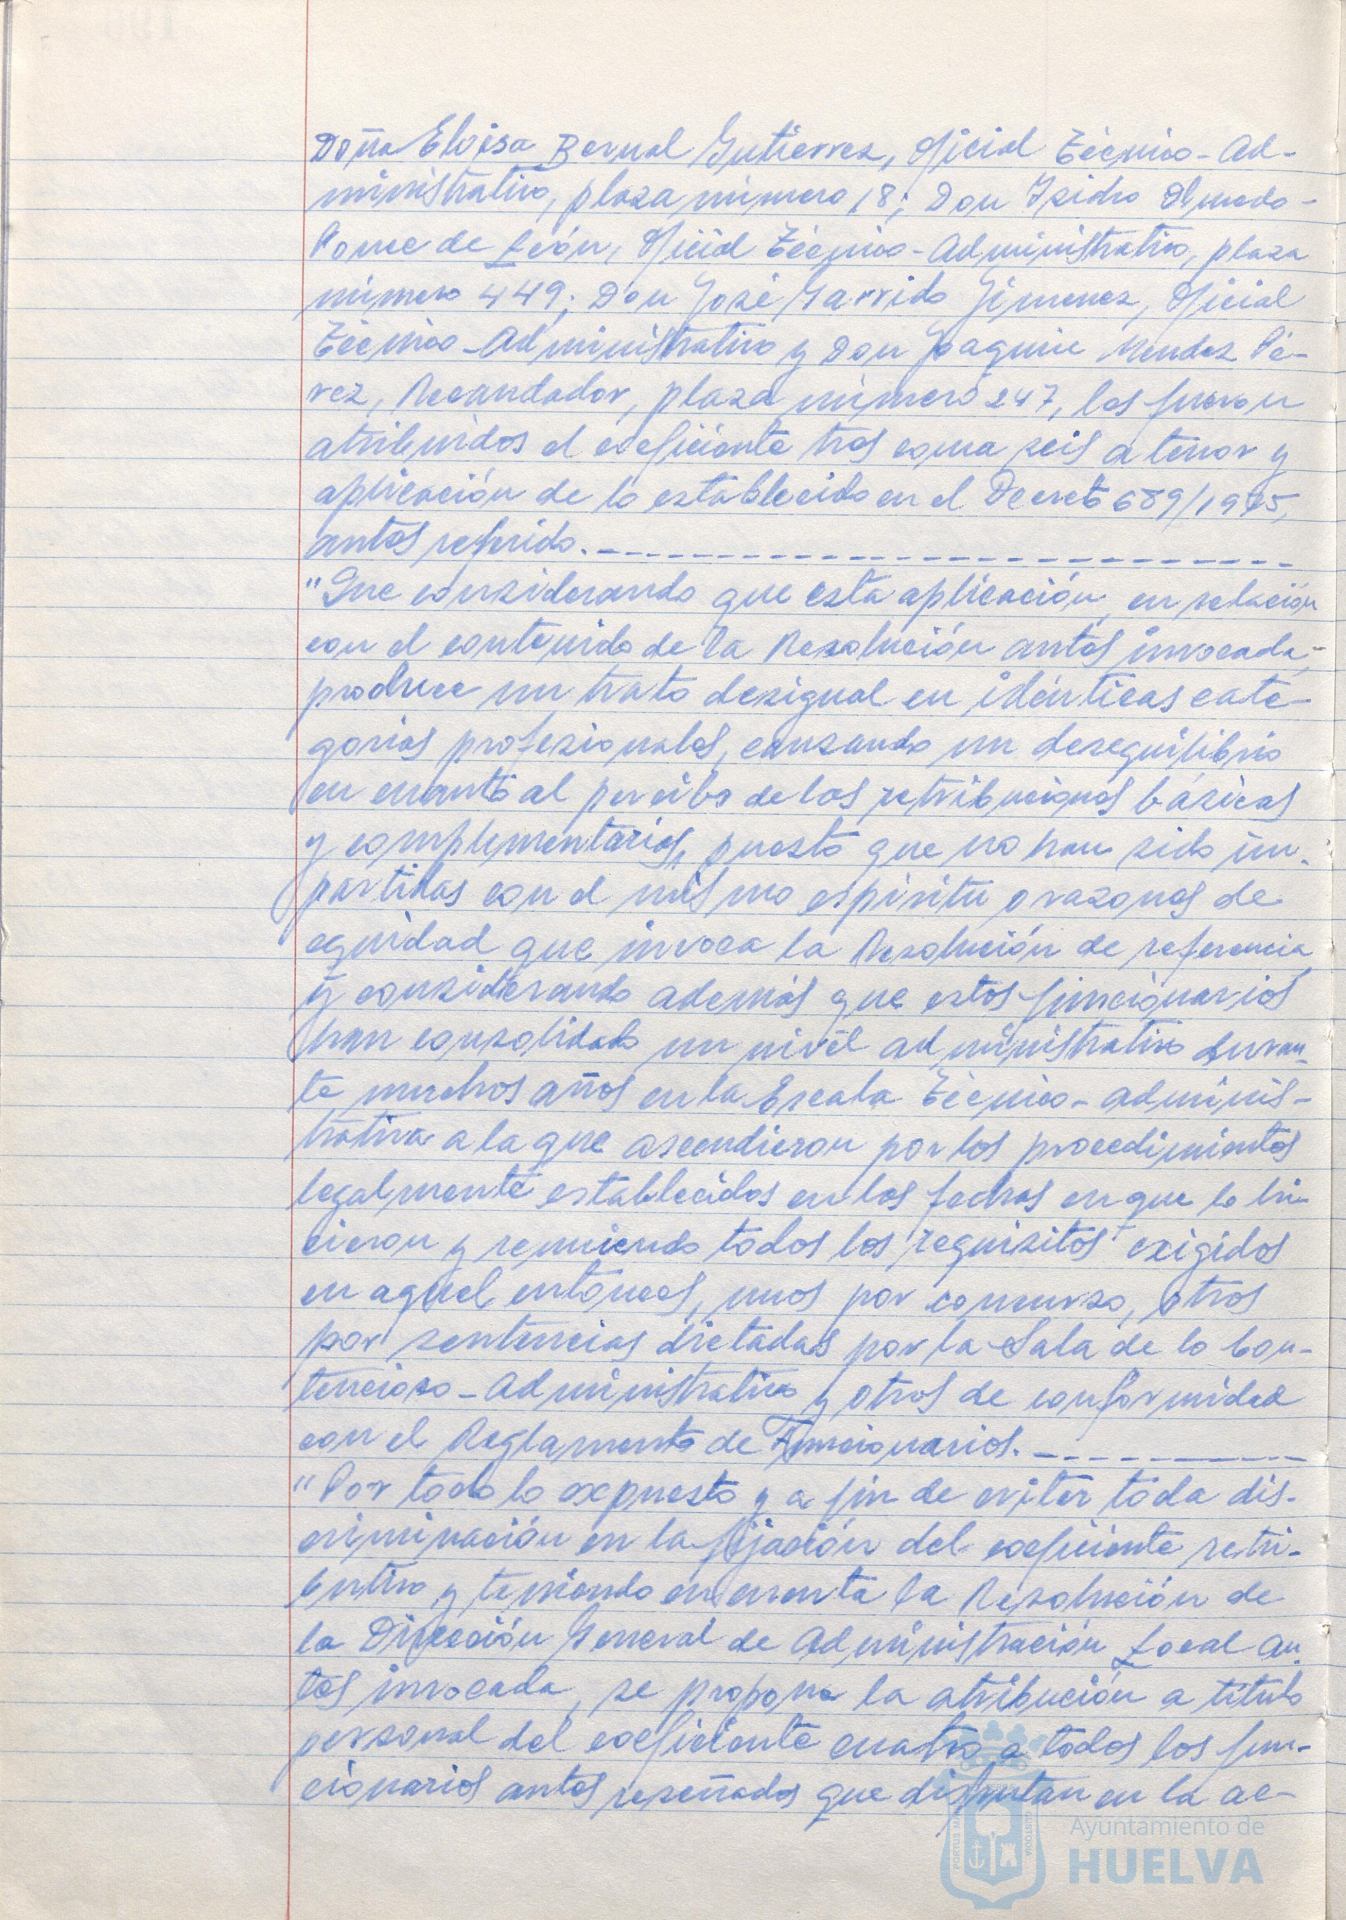 Doña Eloisa Bernal Gutierrez, Oficial Técnico-Ad-
ministrativo, plaza número 18; Don Isidro Olmedo-
Ponce de León, Oficial Técnico-Administrativo, plaza
número 449; Don José Garrido Gimenez, Oficial
Técnico-Administrativo y Don Joaquin Mendez Pé-
rez, Recaudador, plaza número 247, les fueron
atribuidos el coeficiente tres coma seis a tenor y
aplicación de lo establecido en el Decreto 689/1975,
antes referido.
"Que considerando que esta aplicación, en relación
con el contenido de la Resolución antes invocada,
produce un trato desigual en idénticas cate-
gorias profesionales, causando un desequilibrio
en cuanto al percibo de las retribuciones básicas
y complementarias, puesto que no han sido im-
partidas con el mismo espíritu o razones de
equidad que invoca la Resolución de referencia
y considerando además que estos funcionarios
han consolidado un nivel administrativo duran-
te muchos años en la Escala Técnico-adminis-
trativa a la que ascendieron por los procedimientos
legalmente establecidos en las fechas en que lo hi-
cieron y reuniendo todos los requisitos exigidos
en aquel entonces, unos por concurso, otros
por sentencias dictadas por la Sala de lo Con-
tencioso-Administrativo y otros de conformidad
con el Reglamento de Funcionarios.
"Por todo lo expuesto y a fin de evitar toda dis-
criminación en la fijación del coeficiente retri-
butivo y teniendo en cuenta la Resolución de
la Dirección General de Administración Local an-
tes invocada, se propone la atribución a título
personal del coeficiente cuatro a todos los fun-
cionarios antes reseñados que disfrutan en la ac-
Ayuntamiento de
HUELVA